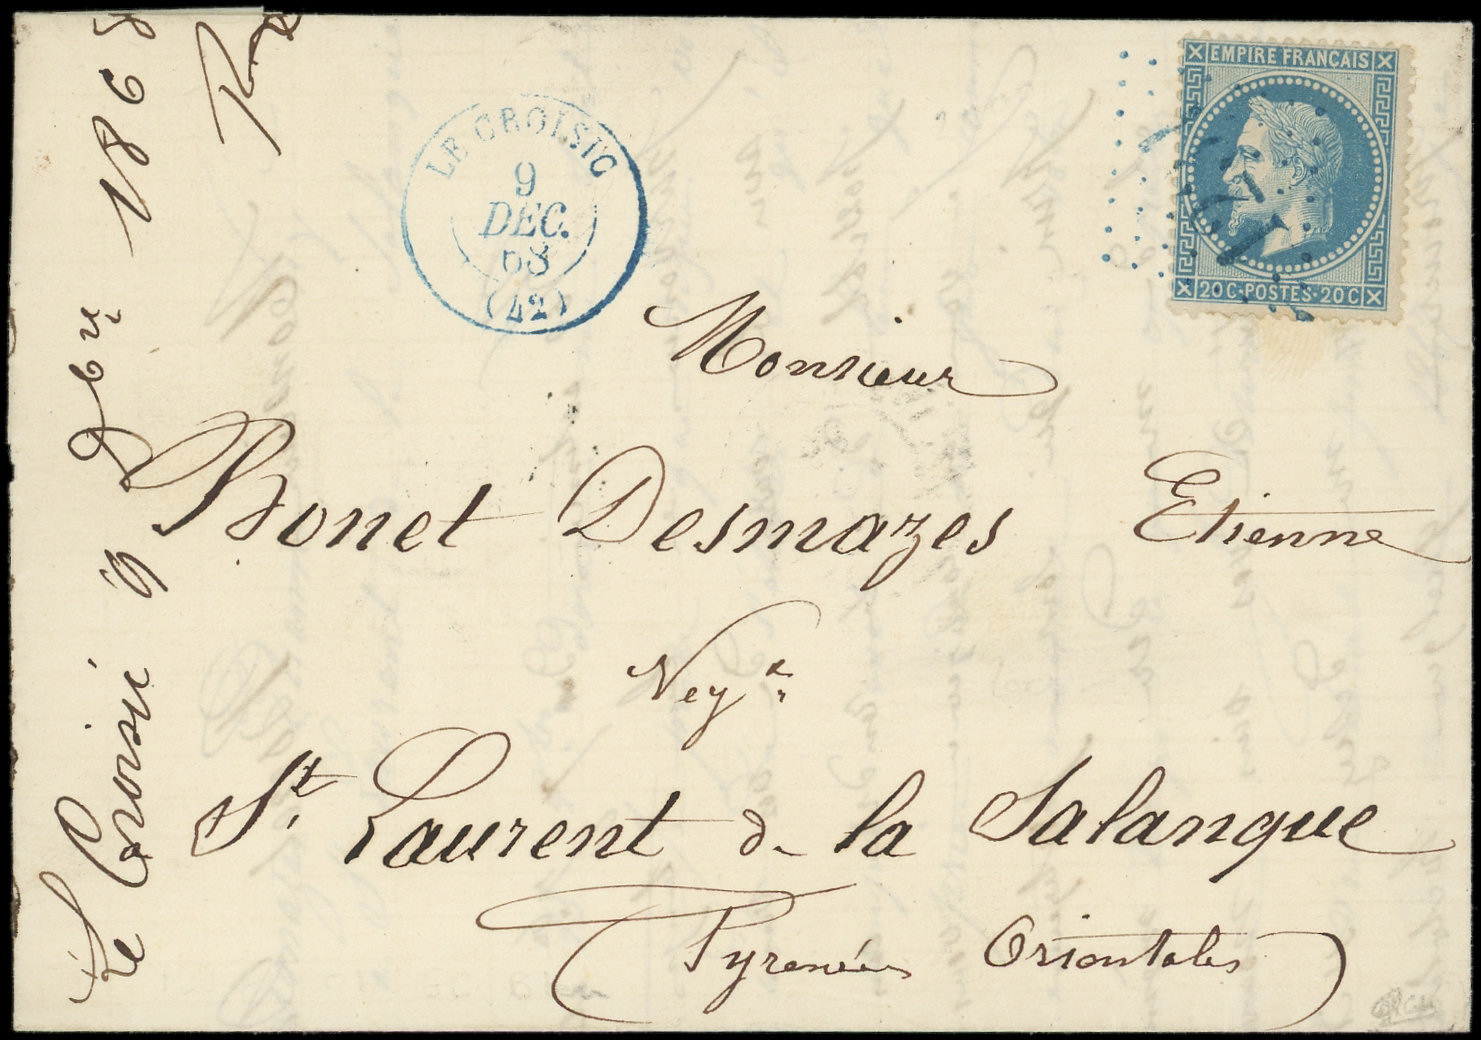 LE CROISIC
9
DEC.
68
(42)
EMPIRE FRANÇAIS
20 C·POSTES·20 C
Monsieur
Bonet Desmazes Etienne
Ney.t
St. Laurent de la Salanque
Pyrenées Orientales
Le Croisic 9 Xbre 1868